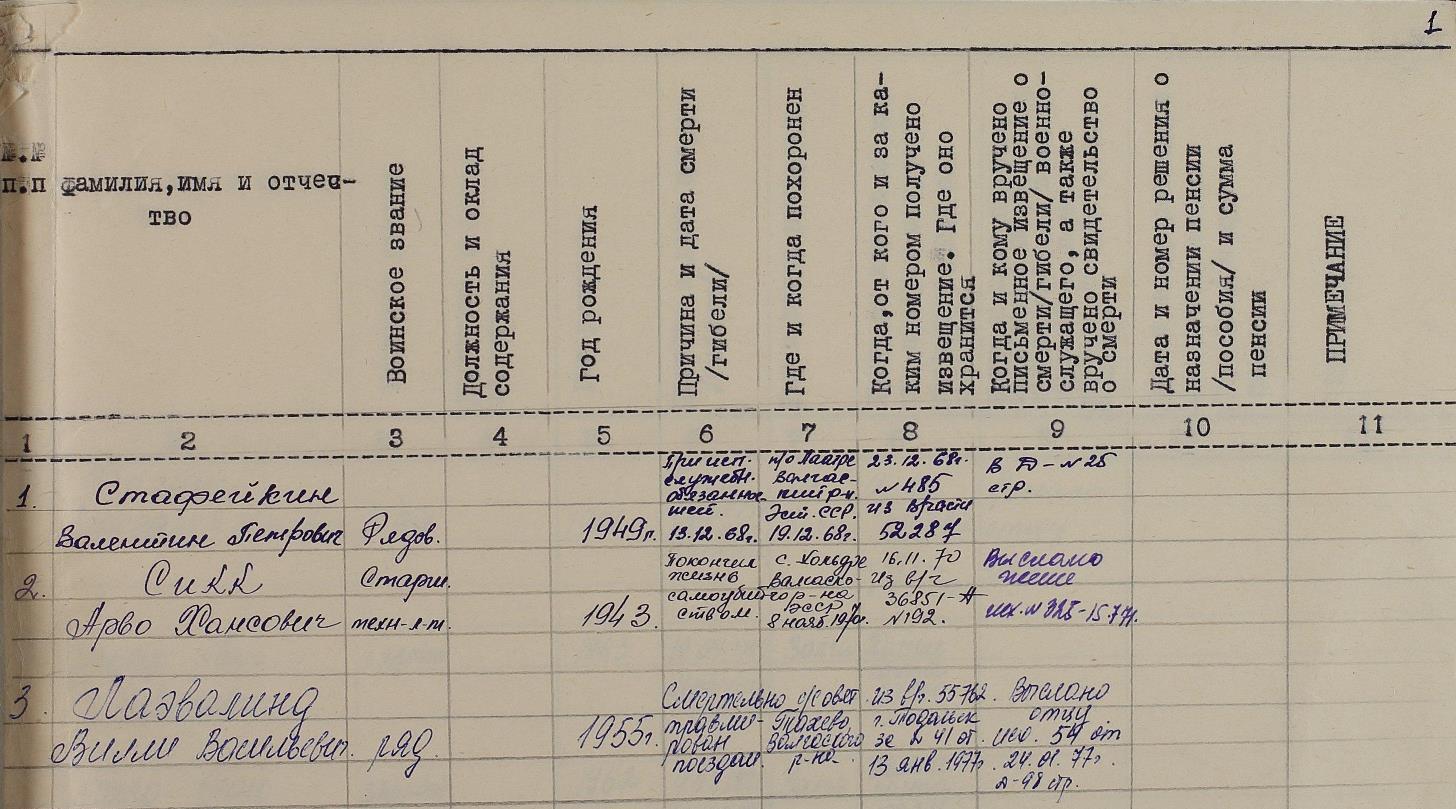 1
№.№
п.п
фамилия,имя и отчес-
тво
Воинское звание
Должность и оклад
содержания
Год рождения
Причина и дата смерти
/гибели/
Где и когда похоронен
Когда,от кого и за ка-
ким номером получено
извещение. Где оно
хранится
Когда и кому вручено
письменное извещение о
смерти/гибели/ военно-
служащего, а также
вручено свидетельство
о смерти
Дата и номер решения о
назначении пенсии
/пособия/ и сумма
пенсии
ПРИМЕЧАНИЕ
1 2 3 4 5 6 7 8 9 10 11
1.
Стафейкин
Валентин Петрович
Рядов.
1949г.
При исп.
служебн.
13.12.68г.
п/о Лаатре
Эст. ССР.
19.12.68г.
23.12.68г.
№ 485
из в/части
52287
В Д-№25
стр.
2.
Сикк
Арво Хансович
Старш.
техн-л-т.
1943.
Покончил
жизнь
самоубий-
ством.
с. Хольдре
Валгаско-
го р-на
ЭССР
16.11.70
из в/ч
36851-А
№192.
Выслано
жене
3
Лаэвалинд
Вилли Васильевич.
ряд.
1955г.
Смертельно
травми-
рован
поездом.
с/совет
Тахева
Валгаского
р-на.
из в/ч. 55762.
г. Подольск
за № 41 от
13 янв. 1977г.
Выслано
отцу.
исх. 54 от
24.01.77г.
Д-98 стр.